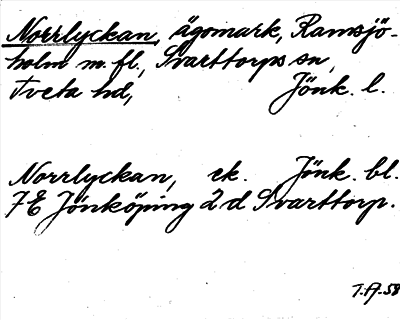 Norrlyckan, ägomark, Ramsjö-
holm m. fl., Svarttorps sn,
Tveta hd, Jönk. l.
Norrlyckan, ek. Jönk. bl.
7E Jönköping 2d Svarttorp.